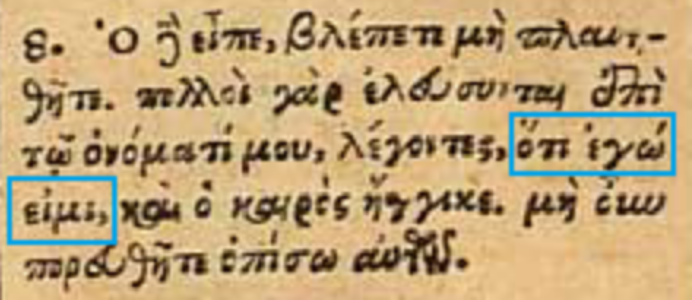 8. Ὁ δὲ εἶπε, βλέπετε μὴ πλανη-
θῆτε. πολλοὶ γὰρ ἐλεύσονται ἐπὶ
τῷ ὀνόματί μου, λέγοντες, ὅτι ἐγώ
εἰμι, καὶ ὁ καιρὸς ἤγγικε. μὴ οὖν
πορευθῆτε ὀπίσω αὐτῶν.